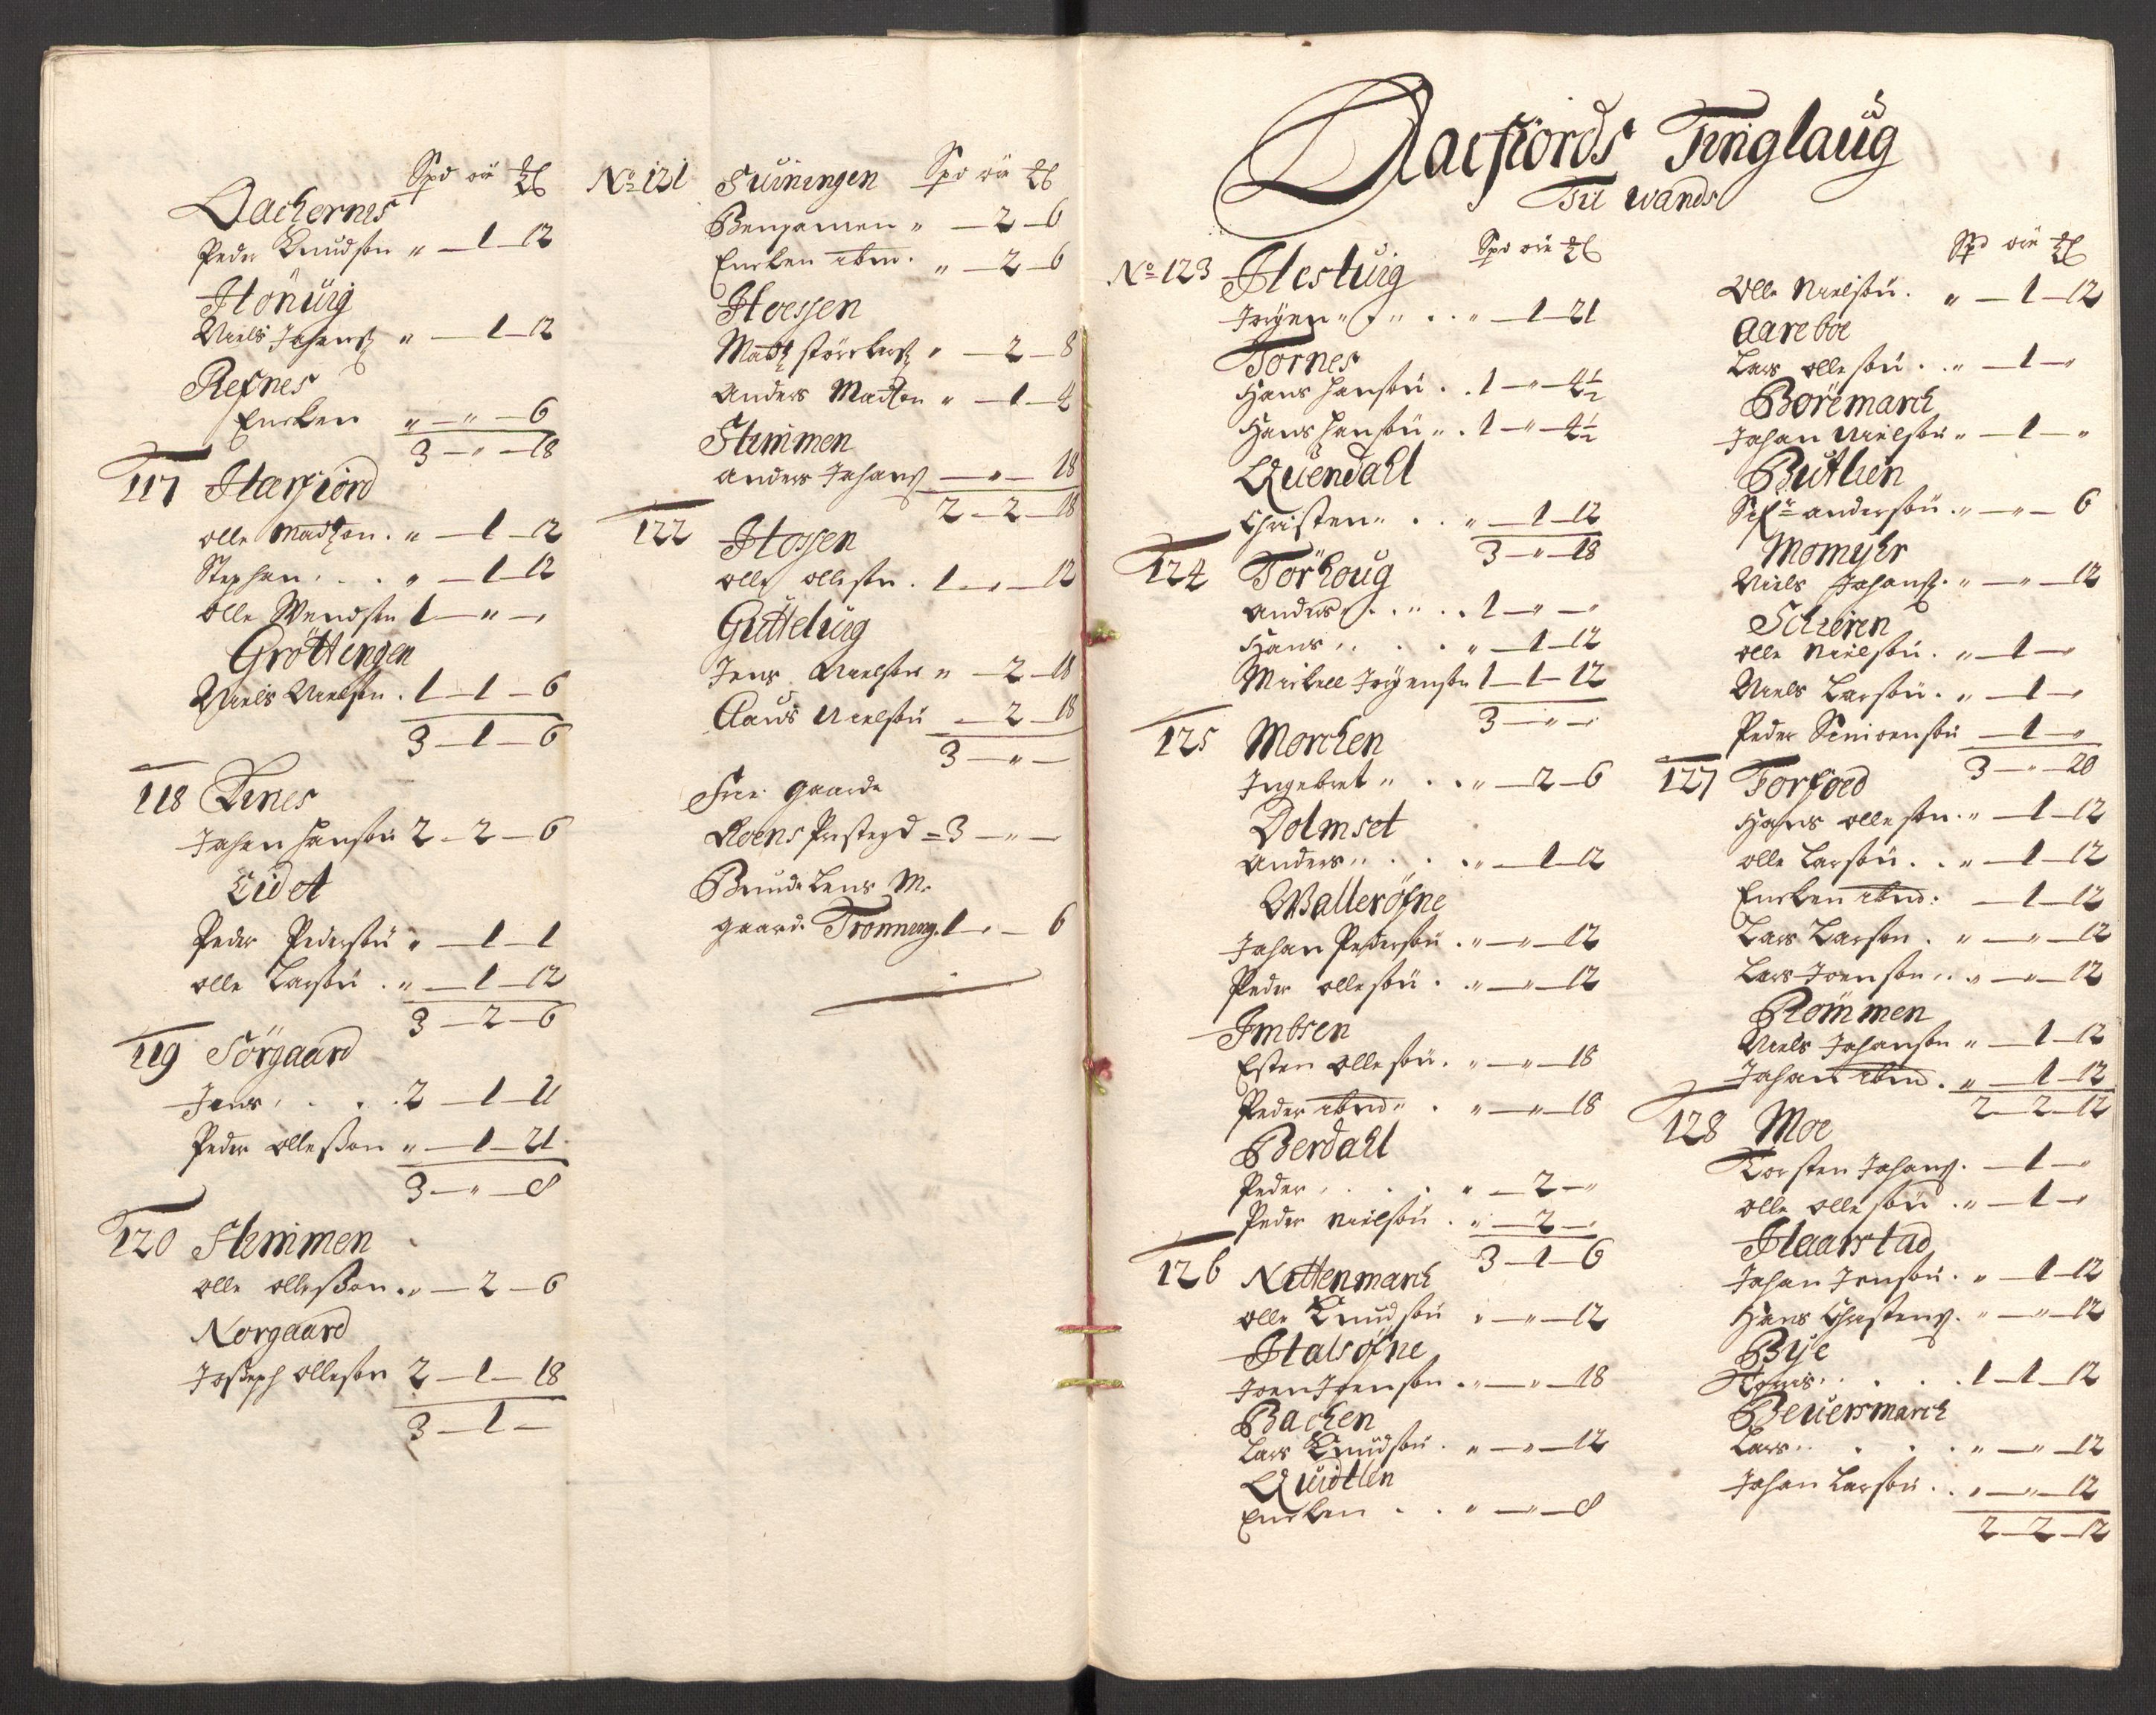 Spd öre
Aackernes
Peder Knudsön " — 1 — 12
Hönuig
Niels Johans " — 1 — 12
Refnes
Encken " — " — 6
3 — " — 18
117 Harfiord
olle Madtzon . " — 1 — 12
Stephen . . . " — 1 — 12
olle Svendsen 1 — " — "
Gröttingen
Niels Nielsen . 1 — 1 — 6
3 — 1 — 6
118 Lines
Johan Hansön 2 — 2 — 6
Eidet
Peder Pedersön " — 1 — 1
olle Larsön . " — 1 — 12
3 — 2 — 6
119 Sörgaard
Jens . . . . 2 — 1 — 11
Peder olleßon " — 1 — 21
3 — " — 8
120 Stemmen
olle olleßon . " — 2 — 6
Norgaard
Joseph olleson 2 — 1 — 18
3 — 1 —
No 121 Suiningen Spd öre
Bengamen " — 2 — 6
Encken ibm . " — 2 — 6
Hoessen
Madtz " — 2 — 8
Anders Madtzon " — 1 — 4
Stemmen
anders Johans — " — 18
2 — 2 — 18
122 Hossen
olle ollesøn . 1 — " — 12
Gutteluig
Jens Nielsøn " — 2 — 18
Claus Nielsön — 2 — 18
3 — " —
Frie gaarde
Roens Prestegd = 3 — " —
Bunde Lens M.
gaard. Tronning. 1 — " — 6
Aaefiords Tinglaug
Til Wands
Spd öre
No 123 Hestuig
Jörgen " . " . . " — 1 — 21
Tornes
Hans Hansön . . 1 — " — 4½
Hans Hansön " . 1 — " — 4½
Quendahl
Christen " . . " — 1 — 12
3 — " — 18
124 Törhoug
Anders . . " . . 1 — " — "
Hans . . . . " — 1 — 12
Mickell Jörgensøn 1 — 1 — 12
3 — " — "
125 Morchen
Ingebret " . . " — 2 — 6
Dolmset
Anders " . . . " — 1 — 12
Wallersøfne
Johan Pedersön . " — " — 12
Peder ollesön . . " — " — 12
Imbsen
Esten ollesön . " — " — 18
Peder ibm " . " — " — 18
Berdahl
Peder . . . . " — 2 — "
Peder Nielsön . " — 2 — "
3 — 1 — 6
126 Nettenmarch
olle Knudsön " — " — 12
Halsøfne
Joen Joensøn . " — " — 18
Bachen
Lars Knudsön . " — " — 12
Quidtlin
Encken . . " — " — 8
Spd öre
Olle Nielsön . " — 1 — 12
Aareboe
Lars ollesön . . " — 1 — "
Böremarch
Johan Nielsön " — 1 — "
Butlien
andersön . " — " — 6
Momyhr
Niels Johans . " — " — 12
Schieren
olle Nielsön . " — 1 — "
Niels Larsön . " — 1 — "
Peder Simonsön — 1 — "
3 — " — 20
127 Forfoed
Hans ollesøn . " — 1 — 12
olle Larsön . . " — 1 — 12
Encken ibm : — 1 — 12
Lars Larsøn . " — " — 12
Lars Joensøn . . " — " — 12
Römmen
Niels Johansøn " — 1 — 12
Johan ibm . " — 1 — 12
2 — 2 — 12
128 Moe
Torsten Johans . — 1 — "
olle ollesön . " — 1 — "
Haarstad
Johan Jensön . " — 1 — 12
Hans Christens . " — " — 12
Bÿe
. . . . 1 — 1 — 12
Beuersmarch
Lars . . . . " — " — 12
Johan Larsön . . " — " — 12
2 — 2 — 12